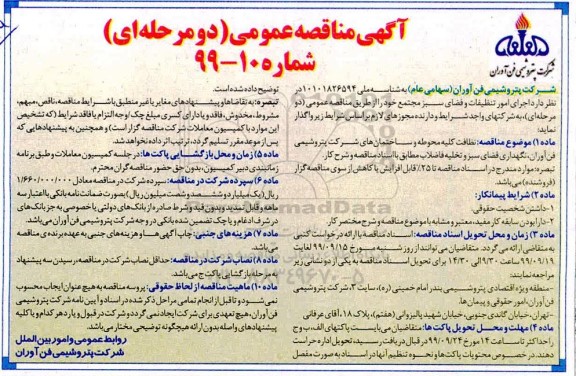 آگهی مناقصه عمومی (دو مرحله‌ای)
شماره ۱۰۵-۹۹
شرکت پتروشیمی فن آوران
شرکت پتروشیمی فن آوران (سهامی عام) به شناسه ملی ۱۰۱۰۱۸۲۶۵۹۴ در
نظر دارد اجرای امور تنظیفات و فضای سبز مجتمع خود را از طریق مناقصه عمومی (دو
مرحله‌ای)، به شرکتهای واجد شرایط و دارنده مجوزهای لازم بر اساس شرایط زیر واگذار
نماید:
ماده ۱) موضوع مناقصه: نظافت کلیه محوطه و ساختمان های شرکت پتروشیمی
فن آوران، نگهداری فضای سبز و تخلیه فاضلاب مطابق با اسناد مناقصه و شرح کار
تبصره: موارد مندرج در اسناد مناقصه تا ۲۵٪ قابل افزایش یا کاهش از سوی مناقصه گزار
(فروشنده) می‌باشد.
ماده ۲) شرایط پیمانکار:
۱- داشتن شخصیت حقوقی
۲- دارا بودن سابقه کار مفید، معتبر و مشابه با موضوع مناقصه و شرح مختصر کار.
ماده ۳) زمان و محل تحویل اسناد: اسناد مناقصه با ارائه درخواست کتبی
به متقاضی ارائه می گردد. متقاضیان می توانند از روز شنبه مورخ ۹۹/۰۹/۱۵ لغایت
۹۹/۰۹/۱۹ ساعت ۹/۳۰ الی ۱۴/۳۰ برای تحویل اسناد مناقصه به یکی از دو نشانی زیر
مراجعه نمایند:
-منطقه ویژه اقتصادی پتروشیمی بندر امام خمینی (ره)، سایت ۲، شرکت پتروشیمی
فن آوران، امور حقوقی و پیمان ها.
-تهران، خیابان گاندی جنوبی، خیابان شهید پالیزوانی (هفتم)، پلاک ۱۸، آقای عرفانی
ماده ۴) مهلت و محل تحویل پاکت ها: متقاضیان می بایست پاکتهای الف، ب و ج
را حداکثر تا ساعت ۱۴ مورخ ۹۹/۰۹/۲۴ در قبال دریافت رسید، تحویل اداره حراست
دهند. در خصوص محتویات پاکت ها و نحوه تنظیم آنها در اسناد به صورت مفصل
توضیح داده شده است.
تبصره: به تقاضاها و پیشنهادهای مغایر یا غیر منطبق با شرایط مناقصه، ناقص، مبهم،
مشروط، مخدوش، فاقد و یا دارای کسری مبلغ چک / وجه التزام یا فاقد شرایط (که تشخیص
این موارد با کمیسیون معاملات شرکت مناقصه گزار است) و همچنین به پیشنهادهایی که
پس از موعد مقرر تسلیم گردد، ترتیب اثر داده نخواهد شد.
ماده ۵) زمان و محل بازگشایی پاکت ها: در جلسه کمیسیون معاملات و طبق برنامه
زمانبندی دبیر کمیسیون، بدون حق حضور مناقصه گران محترم.
ماده ۶) سپرده شرکت در مناقصه: سپرده شرکت در مناقصه معادل ۱/۶۶۰/۰۰۰/۰۰۰
ریال (یک میلیارد و ششصد و شصت میلیون ریال) بصورت ضمانت نامه بانکی با اعتبار سه
ماهه و قابل تمدید و بدون قید و شرط صادره از بانک های دولتی یا خصوصی به جز بانک های
در شرف ادغام و یا چک تضمین شده بانکی در وجه شرکت پتروشیمی فن آوران می‌باشد.
ماده ۷) هزینه های جنبی: چاپ آگهی ها و هزینه های جنبی به عهده برنده ی مناقصه
می باشد.
ماده ۸) نصاب شرکت در مناقصه: حداقل نصاب شرکت در مناقصه رسیدن سه پیشنهاد
به مرحله بازگشایی پاکت ج می باشد.
ماده ۱۰) ماهیت مناقصه از لحاظ حقوقی: پروسه مناقصه به هیچ عنوان ایجاب محسوب
نمی شود و تا قبل از انجام تمامی مراحل ذکر شده در اسناد و آیین نامه شرکت پتروشیمی
فن آوران، هیچ تعهدی برای شرکت ایجاد نمی گردد و شرکت در قبول و یا رد هر کدام و یا کلیه
پیشنهادهای واصله بدون ارائه هیچگونه توضیحی مختار می باشد.
روابط عمومی و امور بین الملل
شرکت پتروشیمی فن آوران